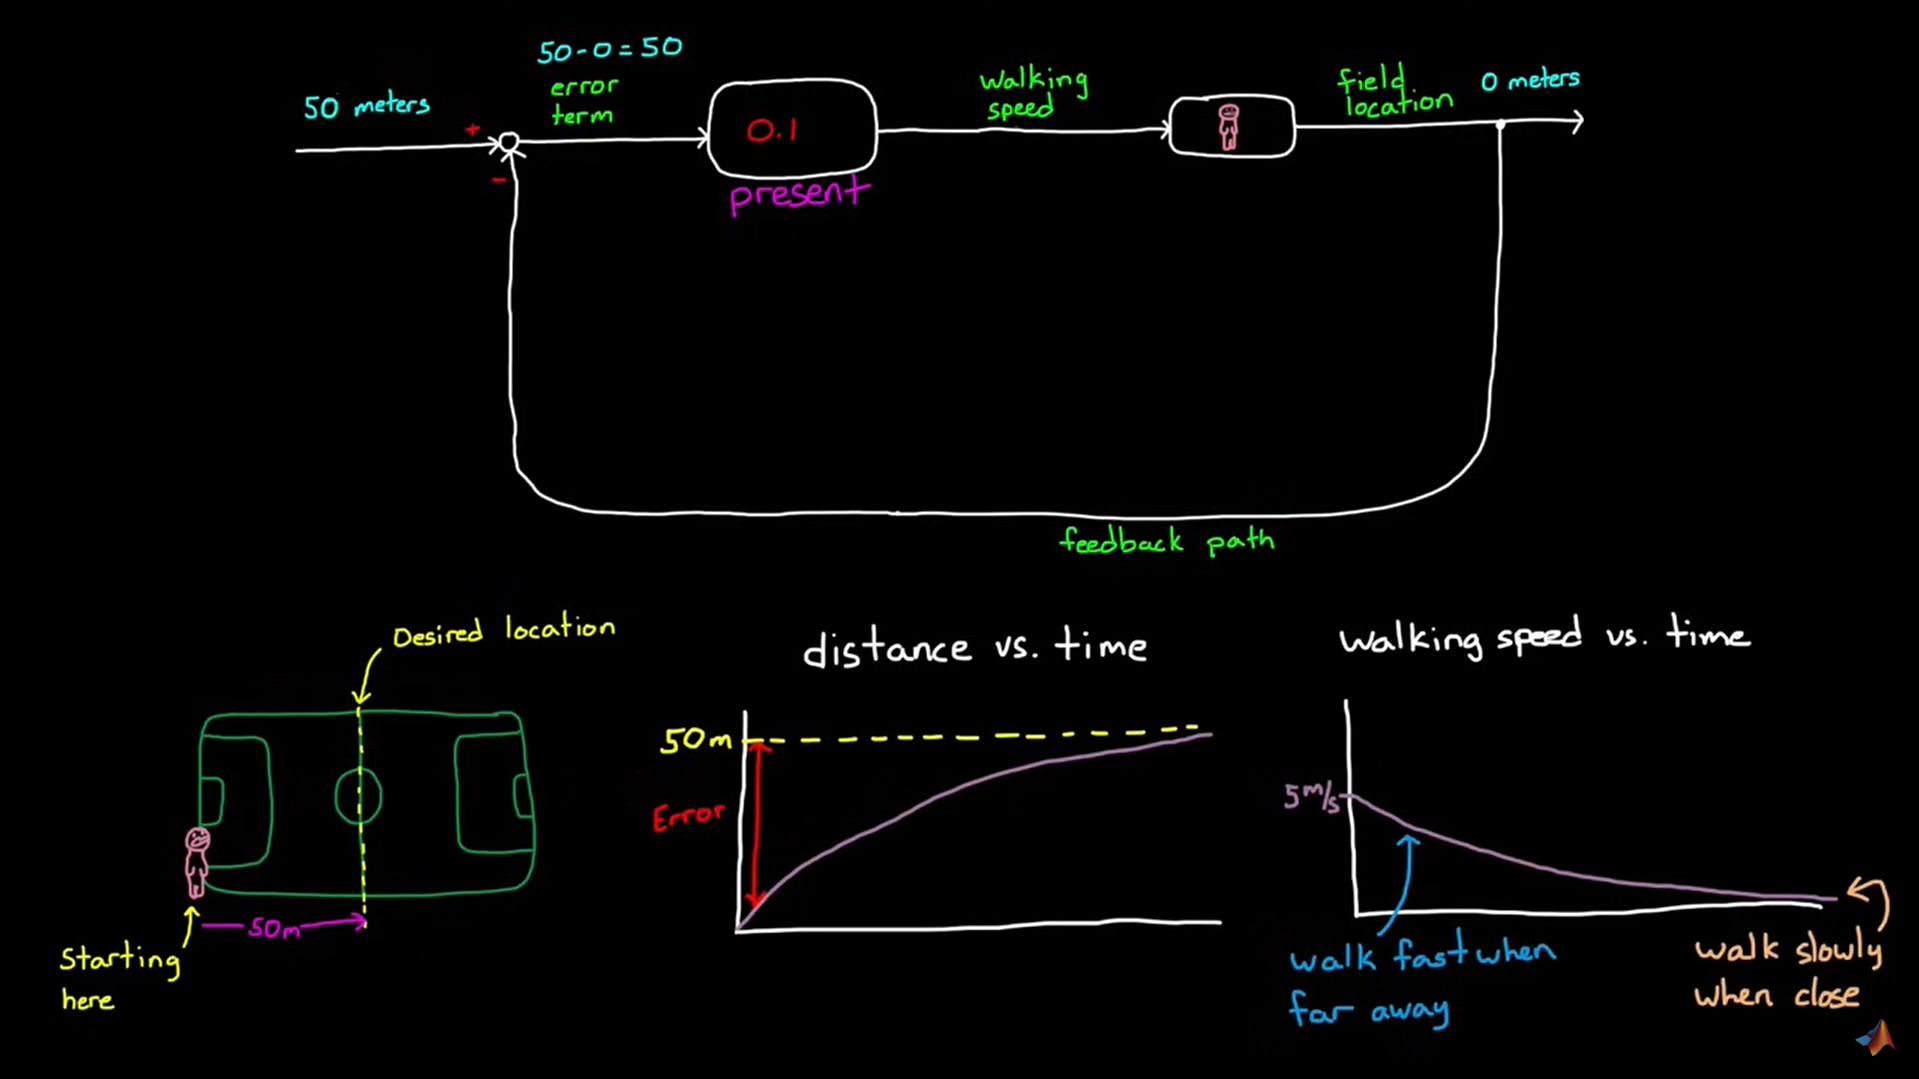 50-0=50
error
term
50 meters
+
-
0.1
present
walking
speed
field
location
0 meters
feedback path
Desired location
Starting
here
50m
distance vs. time
50m
Error
walking speed vs. time
5m/s
walk fast when
far away
walk slowly
when close